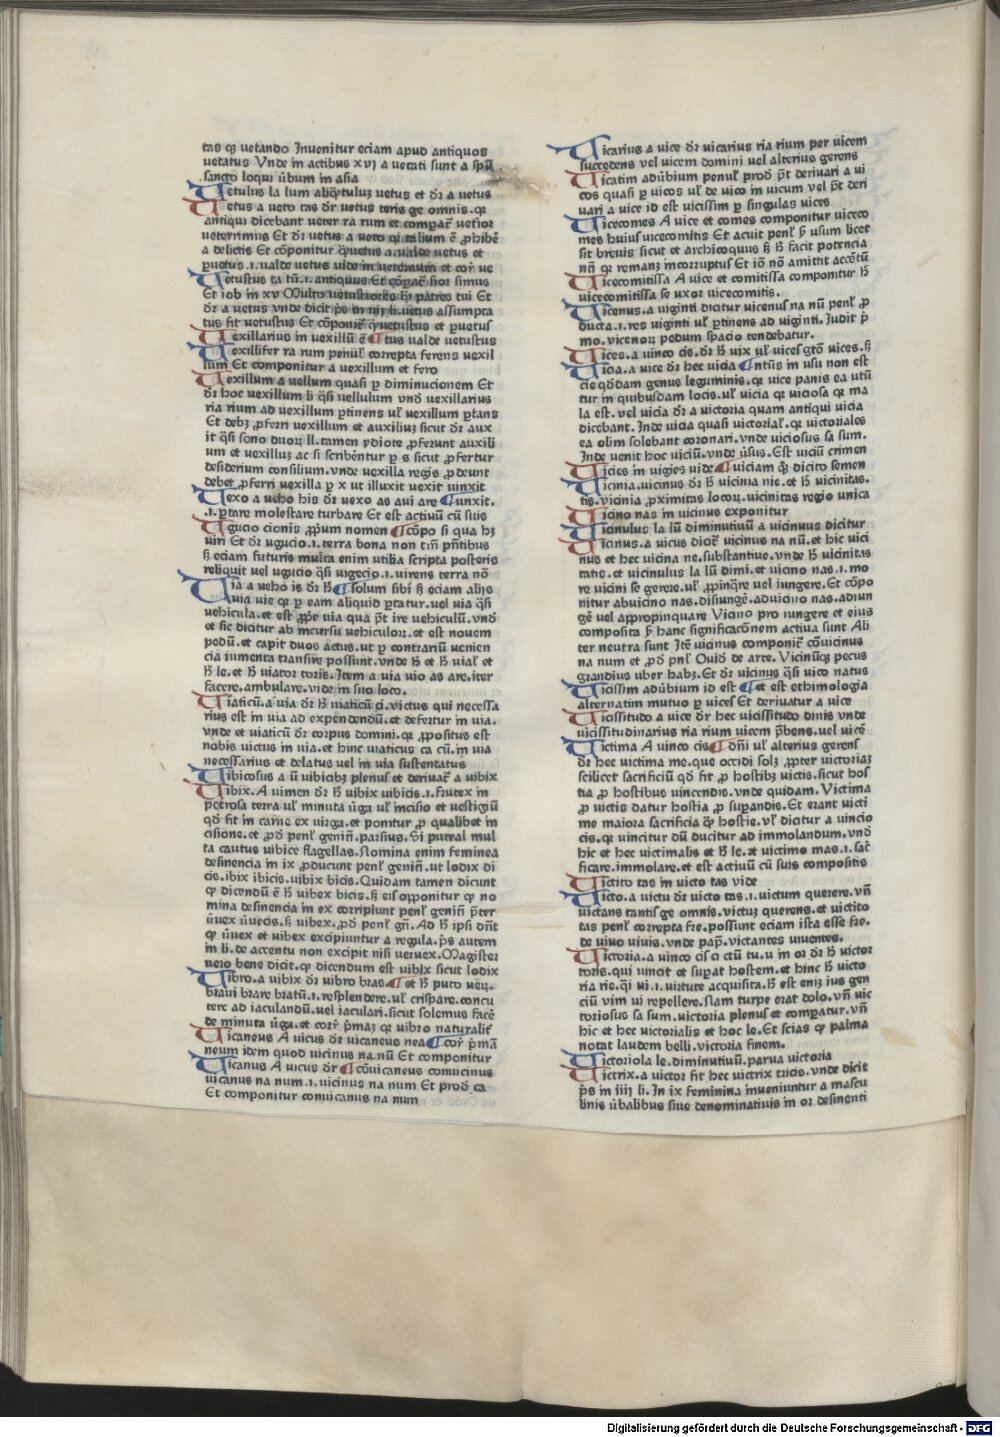 tas qꝫ vetando Inuenitur eciam apud antiquos
uetatus Vnde in actibus xvj a uetati sunt a spũ
sancto loqui ũbum in asia
Uetulus la lum aliq̃tuluꝫ uetus et dꝛ a uetus
Uetus a veto tas dꝛ vetus teris ge omnis. qꝛ
antiqui dicebant ueter ra rum et compaꝛ̃ uetior
ueterrimus Et dꝛ uetus a veto qꝛ talium ẽ ꝓhibẽ
a delictis Et cõponitur
puetus .ı. ualde uetus uide in veternum et coꝛ̃ ve
Uetustus ta tũ .ı. antiquus Et cõpaꝛ̃ sior simus
Et iob in xv Multo uetustiores patres tui Et
dꝛ a uetus vnde dicit uetus assumpta
tus fit vetustus Et cõponiꝛ̃ q̃vetustus et puetus
Uexillarius in vexillũ ẽ ¶ tus valde vetustus
Uexillifer ra rum penul̃ correpta ferens vexil
lum Et componitur a vexillum et fero
Uexillum a vellum quasi ꝑ diminucionem Et
dꝛ hoc vexillum li q̃si vellulum vnd̃ vexillarius
ria rium ad vexillum ꝑtinens ul̃ vexillum ꝑtans
Et debꝫ ꝓferri vexillum et auxiliuꝫ sicut dꝛ aux
it q̃si sono duoꝝ ll. tamen ydiote ꝓferunt auxili
um et vexilluꝫ ac si scribẽntur ꝑ s sicut ꝓfertur
desiderium consilium. vnde vexilla regis ꝓdeunt
debet ꝓferri vexilla ꝑ x ut illuxit vexit uinxit
Uexo a veho his dꝛ vexo as aui are ¶ unxit.
.ı. ꝑtare molestare turbare Et est actiuũ cũ suis
Ugucio cionis ꝓpꝛ̃um nomen ¶ cõpo si qua hꝫ
viri Et dꝛ ugucio .ı. terra bona non tĩm pñtibus
sꝫ eciam futuris multa enim utilia scripta posteris
reliquit vel ugucio q̃si vigecio .ı. virens terra nõ
Uia a veho is dꝛ h̃ ¶ solum sibi sꝫ eciam alijs
via vie qꝛ ꝑ eam aliquid ꝑtatur. uel via q̃si
vehicula. et est ꝓpꝛ̃e via qua p̃t ire vehiculũ. vnd̃
et sic dicitur ab incursu vehiculoꝝ. et est nouem
pedũ. et capit duos actus. ut ꝑ contrariũ uenien
cia iumenta transire possunt. vnde h̃ et h̃ vial̃ et
h̃ le. et h̃ viator toris. Item a via vio as are. iter
facere. ambulare. vide in suo loco.
Uiaticũ. a via dꝛ h̃ viaticũ ci. victus qui necessa
rius est in via ad expendendũ. et defertur in via.
vnde et viaticũ dꝛ corpus domini. qꝛ ꝓpositus est
nobis victus in via. et hinc viaticus ca cũ. in via
necessarius et delatus vel in via sustentatus
Uibicosus a ũ vibicibꝫ plenus et deriuaꝛ̃ a vibix
Uibix. A vimen dꝛ h̃ vibix vibicis .ı. frutex in
petrosa terra ul̃ minuta ũga ul̃ incisio et vestigiũ
qd̃ fit in carne ex virga. et ponitur ꝓ qualibet in
cisione. et ꝓd̃ penl̃ geniñ. parsius. Si puteal mul
ta cautus vibice flagellas. Nomina enim feminea
desinencia in ix ꝓducunt penl̃ geniñ. ut lodix di
cis. ibix ibicis. vibix bicis. Quidam tamen dicunt
ꝙ dicendũ ẽ h̃ vibex bicis. sꝫ eis opponitur ꝙ no
mina desinencia in ex corripiunt penl̃ geniñ p̃ter
ũvex ũvecis. sꝫ vibex. ꝓd̃ penl̃ gñi. Ad h̃ ipsi dñt
ꝙ ũvex et vibex excipiuntur a regula. p̃s autem
in li. de accentu non excipit nisi vervex. Magister
vero bene dicit. ꝙ dicendum est vibix sicut lodix
Uibro. a vibix dꝛ vibro bras. ¶ et h̃ puto veꝝ.
braui brare bratũ .ı. resplendere. ul̃ crispare. concu
tere ad iaculandũ. uel iaculari. sicut solemus facẽ
de minuta ũga. et coꝛ̃ pꝛ̃maꝫ qꝛ vibro naturalit̃
Uicaneus A vicus dꝛ vicaneus nea ¶ coꝛ̃ pꝛ̃mã
neum idem quod vicinus na nũ Et componitur
Uicanus A vicus dꝛ ¶ cõuicaneus convicinus
vicanus na num .ı. vicinus na num Et prod̃ ca
Et componitur conuicanus na num
Uicarius a vice dꝛ vicarius ria rium per vicem
succedens vel vicem domini uel alterius gerens
Uicatim adũbium penul̃ prod̃ p̃t deriuari a vi
cos quasi ꝑ vicos ul̃ de vico in vicum vel p̃t deri
uari a vice id est vicissim ꝑ singulas vices
Uicecomes A vice et comes componitur viceco
mes huius vicecomitis Et acuit penl̃ ꝑ̃ usum licet
sit breuis sicut et archicoquus sꝫ h̃ facit potencia
nñ qꝛ remanꝫ incorruptus Et iõ nõ amittit accẽtũ
Uicecomitissa A vice et comitissa componitur h̃
vicecomitissa se vxor vicecomitis.
Uicenus. a viginti dicitur vicenus na nũ penl̃ ꝓ
ducta .ı. res viginti ul̃ ꝑtinens ad viginti. Judit p̃
mo. vicenoꝝ pedum spacio tendebatur.
Uices. a vinco cis. dꝛ h̃ vix ul̃ vices gtõ vices. sꝫ
Uicia. a vice dꝛ hec vicia ¶ ntũs in usu non est
cie qd̃dam genus leguminis. qꝛ vice panis ea utũ
tur in quibusdam locis. ul̃ vicia qꝛ viciosa qꝛ ma
la est. vel vicia dꝛ a victoria quam antiqui vicia
dicebant. Inde vicia quasi victorial̃. qꝛ victoriales
ea olim solebant coronari. vnde viciosus sa sum.
Inde venit hoc viciũ. vnde ũsus. Est viciũ crimen
Uicies in vigies vide ¶ viciam qꝫ dicito semen
Uicinia. vicinus dꝛ h̃ vicinia nie. et h̃ vicinitas.
tis. vicinia ꝓximitas locoꝝ. vicinitas regio unica
Uicino nas in vicinus exponitur
Uicinulus la lũ diminutiuũ a vicinuus dicitur
Uicinus. a vicus diciꝛ̃ vicinus na nũ. et hic vici
nus et hec vicina ne. substantiue. vnde h̃ vicinitas
tatis. et vicinulus la lũ dimi. et vicino nas .ı. mo
re vicini se gerere. ul̃ ꝓpinq̃re vel iungere. Et cõpo
nitur abuicino nas. disiungẽ. aduicino nas. adiun
gẽ vel appropinquare Vicino pro iungere et eius
composita ꝑ̃ hanc significacõnem actiua sunt Ali
ter neutra sunt Itẽ vicinus componiꝛ̃ cõuicinus
na num et ꝓd̃ pnl̃ Ouid̃ de arte. Vicinũqꝫ pecus
grandius vber habꝫ. Et dꝛ vicinus q̃si vico natus
Uicissim adũbium id est ¶ et est ethimologia
alternatim mutuo ꝑ vices Et deriuatur a vice
Uicissitudo a vice dꝛ hec vicissitudo dinis vnde
vicissitudinarius ria rium vicem p̃bens. vel vicẽ
Uictima A vinco cis ¶ dñi ul̃ alterius gerens
dꝛ hec victima me. que occidi solꝫ ꝓpter victoriaꝫ
scilicet sacrificiũ qd̃ fit ꝓ hostibꝫ victis. sicut hos
tia ꝓ hostibus vincendis. vnde quidam. Victima
ꝓ victis datur hostia ꝓ suꝑandis. Et erant victi
me maiora sacrificia ꝙ̃ hostie. ul̃ dicatur a vincio
cis. qꝛ vincitur dũ ducitur ad immolandum. vnd̃
hic et hec victimalis et h̃ le. et victimo mas .ı. sac̃
ficare. immolare. et est actiuũ cũ suis compositis
Uictito tas in victo tas vide
Uicto. a victu dꝛ victo tas .ı. victum querere. vñ
victans tantis ge omnis. victuꝫ querens. et victito
tas penl̃ correpta fre. possunt eciam ista esse fre.
de viuo viuis. vnde pap̃. victantes viuentes.
Uictoria. a vinco cis ci ctũ tu. u in or dꝛ h̃ victor
toris. qui vincit et suꝑat hostem. et hinc h̃ victo
ria rie. qi vi .ı. virtute acquisita. h̃ est eniꝫ ius gen
ciũ vim vi repellere. Nam turpe erat dolo. vñ vic
toriosus sa sum. victoria plenus et comꝑatur. vñ
hic et hec victorialis et hoc le. Et scias ꝙ palma
notat laudem belli. victoria finem.
Uictoriola le. diminutiuũ. parua victoria
Uictrix. a victor fit hec victrix tricis. vnde dicit
p̃s in iiij li. In ix feminina inueniuntur a mascu
linis ũbalibus siue denominatiuis in or desinenti
Digitalisierung gefördert durch die Deutsche Forschungsgemeinschaft - DFG